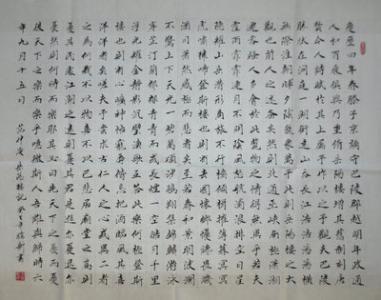 慶曆四年春滕子京謫守巴陵郡越明年政通
人和百廢具興乃重修岳陽樓增其舊制刻唐
賢今人詩賦於其上屬予作文以記之予觀夫巴陵
勝狀在洞庭一湖銜遠山吞長江浩浩湯湯橫
無際涯朝暉夕陰氣象萬千此則岳陽樓之大
觀也前人之述備矣然則北通巫峽南極瀟湘
遷客騷人多會於此覽物之情得無異乎若夫
霪雨霏霏連月不開陰風怒號濁浪排空日星
隱耀山岳潛形商旅不行檣傾楫摧薄暮冥冥
虎嘯猿啼登斯樓也則有去國懷鄉憂讒畏譏
滿目蕭然感極而悲者矣至若春和景明波瀾
不驚上下天光一碧萬頃沙鷗翔集錦鱗游泳
岸芷汀蘭郁郁青青而或長煙一空皓月千里
浮光耀金靜影沉璧漁歌互答此樂何極登斯
樓也則有心曠神怡寵辱偕忘把酒臨風其喜
洋洋者矣嗟夫予嘗求古仁人之心或異二者
之為何哉不以物喜不以己悲居廟堂之高則
憂其民處江湖之遠則憂其君是進亦憂退亦
憂然則何時而樂耶其必曰先天下之憂而憂
後天下之樂而樂乎噫微斯人吾誰與歸時六
年九月十五日
范仲淹岳陽樓記癸巳年書